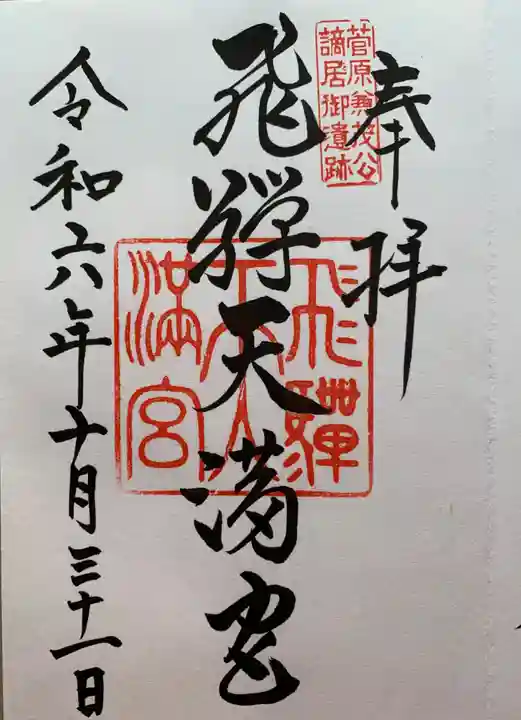 奉拝
菅原兼茂公
謫居御遺跡
飛騨天満宮
飛騨
天
満宮
令和六年十月三十一日